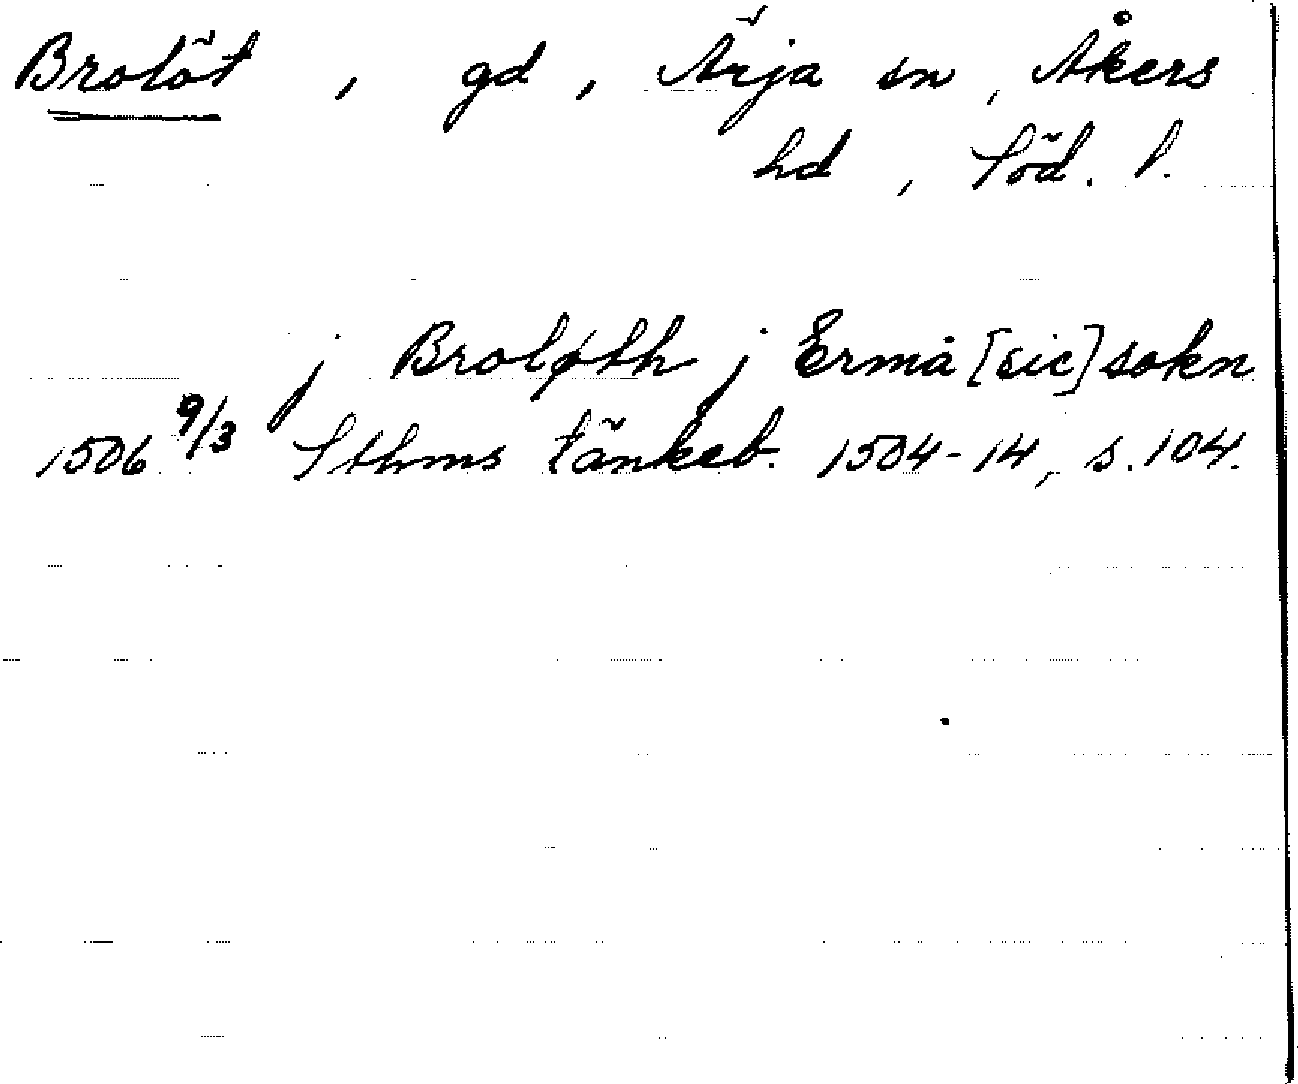 Brolöt, gd, Ärja sn, Åkers
hd, Söd. l.
j Broløth j Ermå [sic] sokn
1506 9/3 Sthms tänkeb. 1504-14, s. 104.